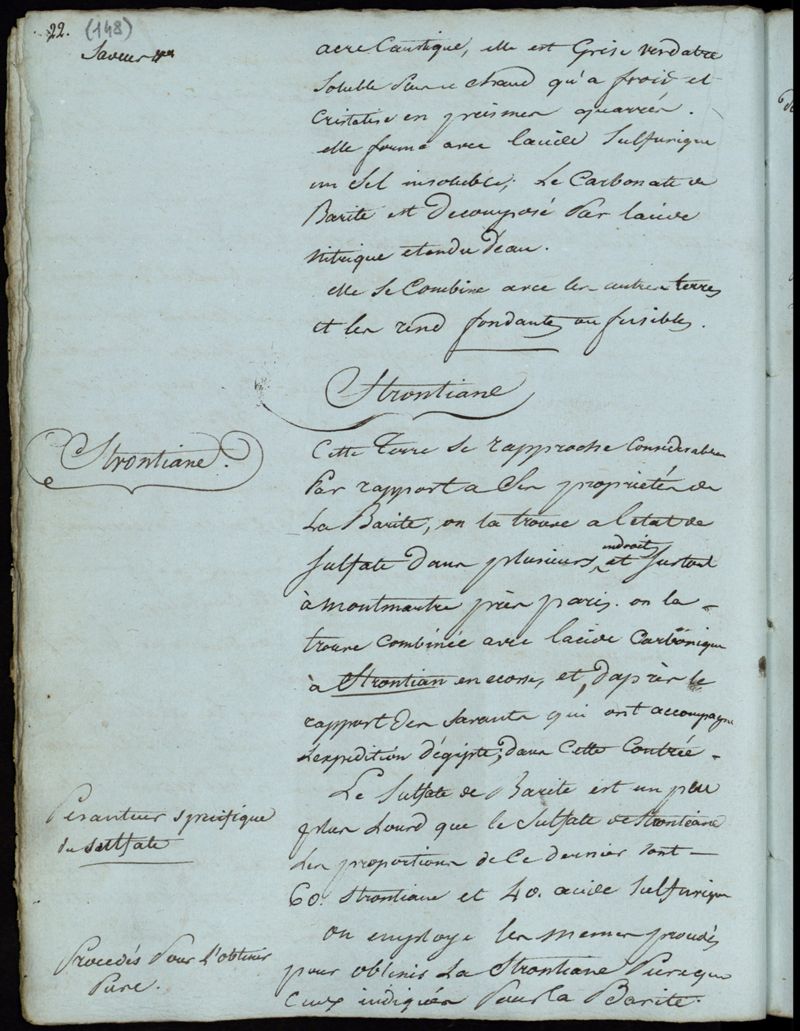 22. (148)
Saveur
acre Caustique, elle est Grise verdatre
soluble dans chaud qu'a froid et
Cristalise en prismes quarrés.
elle forme avec lacide Sulfurique
un Sel insoluble; Le Carbonate de
Barite est Decomposé Par lacide
nitrique etendu D'eau.
elle se Combine avec les autres terres
et les rend fondantes ou fusibles.
Strontiane
Strontiane.
Cette Terre se rapproche Considerablem
Par rapport a Ses proprietés de
La Barite, on la trouve a l'etat de
Sulfate dans plusieurs endroits et Surtout
à montmartre près paris. on la
trouve Combinée avec lacide Carbonique
à Strontian en ecosse, et, d'après le
rapport des Savants qui ont accompagné
L'expedition d'égipte, dans Cette Contrée.
Pesanteur specifique
du sulfate
Le Sulfate de Barite est un peu
plus Lourd que le Sulfate de Strontiane
Les proportions de Ce dernier sont
60. Strontiane et 40. acide Sulfurique
Procedés Pour L'obtenir
Pure.
on employe les memes procédés
pour obtenir La Strontiane Pure que
Ceux indiqués Pour la Barite.